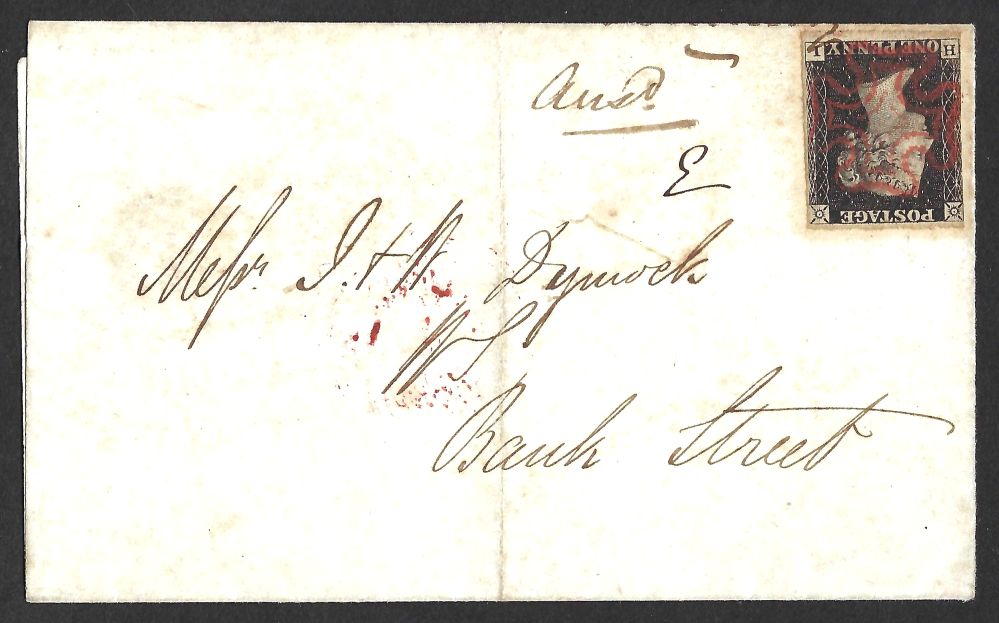 Ansd
E
Messrs. J. & W. Dymock
WS
Bank Street
POSTAGE
H ONE PENNY I